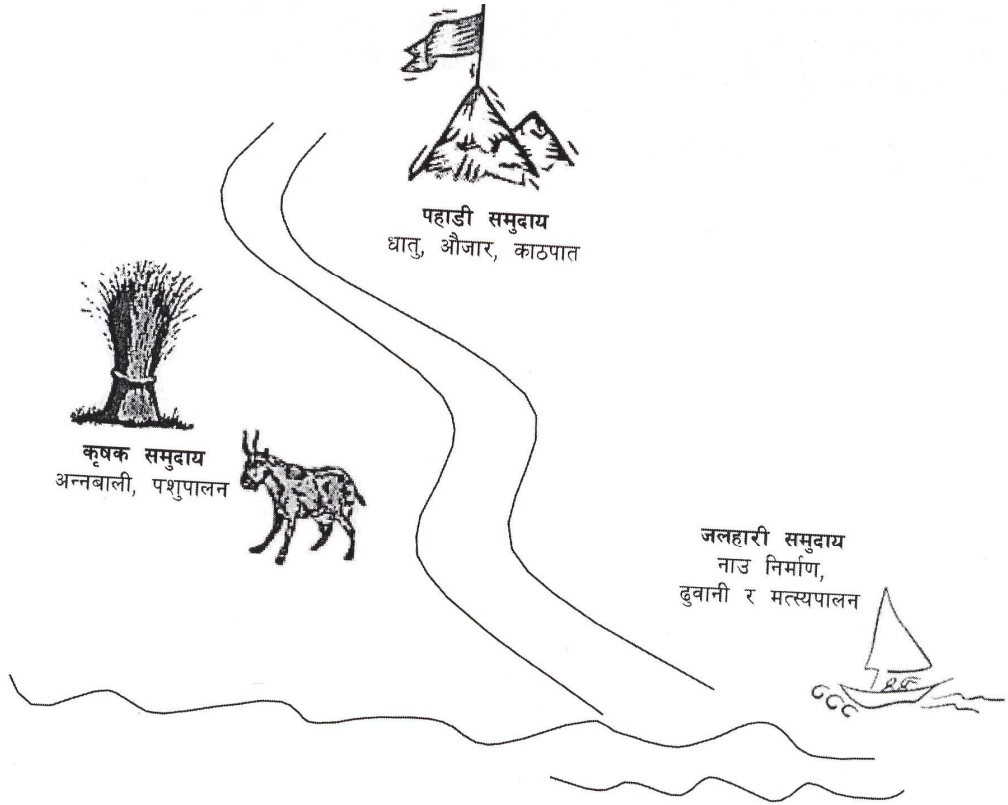 पहाडी समुदाय
धातु, औजार, काठपात
कृषक समुदाय
अन्नबाली, पशुपालन
जलहारी समुदाय
नाउ निर्माण,
ढुवानी र मत्स्यपालन